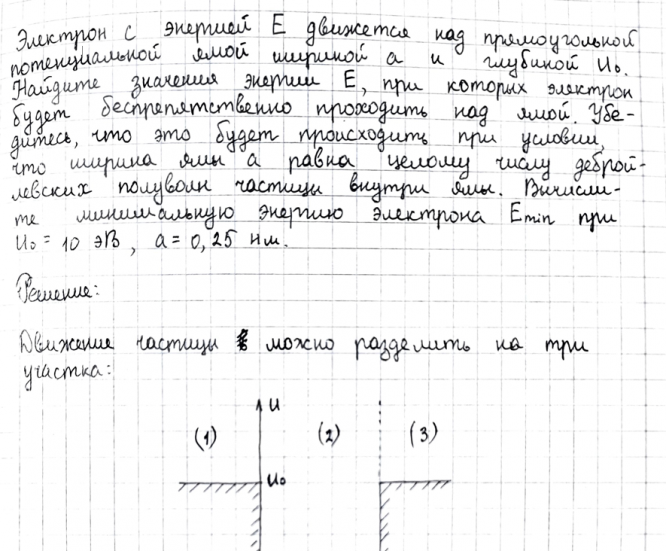 Электрон с энергией E движется над прямоугольной
потенциальной ямой шириной a и глубиной U₀.
Найдите значения энергии E, при которых электрон
будет беспрепятственно проходить над ямой. Убе-
дитесь, что это будет происходить при условии,
что ширина ямы a равна целому числу деброй-
левских полуволн частицы внутри ямы. Вычисли-
те минимальную энергию электрона Emin при
U₀ = 10 эВ, a = 0,25 нм.
Решение:
Движение частицы можно разделить на три
участка:
U
(1) (2) (3)
U₀